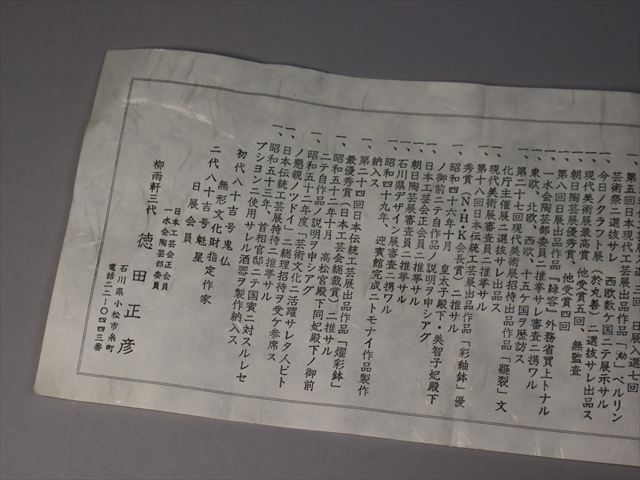 第五回日本伝統工芸展
芸術祭ニ選抜サレ 西欧数ケ国ニテ展示サル
今日ノクラフト展（於丸善）ニ選抜サレ出品ス
現代美術展最高賞 他受賞五回、無監査
朝日陶芸展優秀賞、他受賞四回
第八回日展出品作品『緑容』外務省買上トナル
一水会陶芸部委員ニ推挙サレ審査ニ携ワル
東欧、北欧、西欧、十五ケ国ヲ歴訪ス
第二十七回現代美術展招待出品作品『凝裂』文
化庁主催展ニ選抜サレ出品ス
一、現代美術展審査員ニ推挙サル
一、第十八回日本伝統工芸展出品作品『彩釉鉢』優
秀賞（N・H・K会長賞）ニ推サル
一、昭和四十六年十月 皇太子殿下・美智子妃殿下
ノ御前ニテ自作品ノ説明ヲ申シアグ
一、日本工芸会正会員ニ推挙サル
一、朝日陶芸展審査員ニ推挙サル
一、石川県デザイン展審査ニ携ワル
一、昭和四十九年、迎賓館完成ニトモナイ作品製作
納入ス
一、第二十四回日本伝統工芸展出品作品『燿彩鉢』
最優秀賞（日本工芸会総裁賞）ニ推サル
一、昭和五十二年十月 高松宮殿下同妃殿下ノ御前
ニテ自作品ノ説明ヲ申シアグ
一、昭和五十二年度「芸術文化ニ活躍サレタ人ビト
ノ懇親ノツドイ」ニ総理招待ヲ受ケ参席ス
一、日本伝統工芸展特待ニ推挙サル
一、昭和五十三年、首相官邸ニテ国賓ニ対スルレセ
プションニ使用サレル酒器ヲ製作納入ス
初代八十吉号鬼仏
無形文化財指定作家
二代八十吉号魁星
日展会員
日本工芸会正会員
一水会陶芸部委員
柳雨軒三代 徳田正彦
石川県小松市糸町
電話二二-〇四四三番